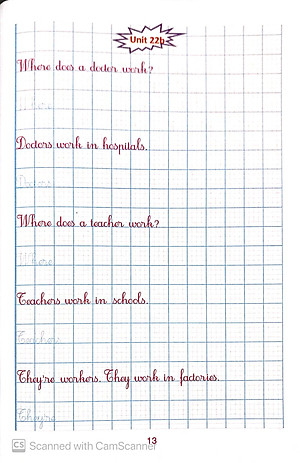 Unit 22b
Where does a doctor work?
Where
Doctors work in hospitals.
Doctors
Where does a teacher work?
Where
Teachers work in schools.
Teachers
They're workers. They work in factories.
They're
13
CS Scanned with CamScanner